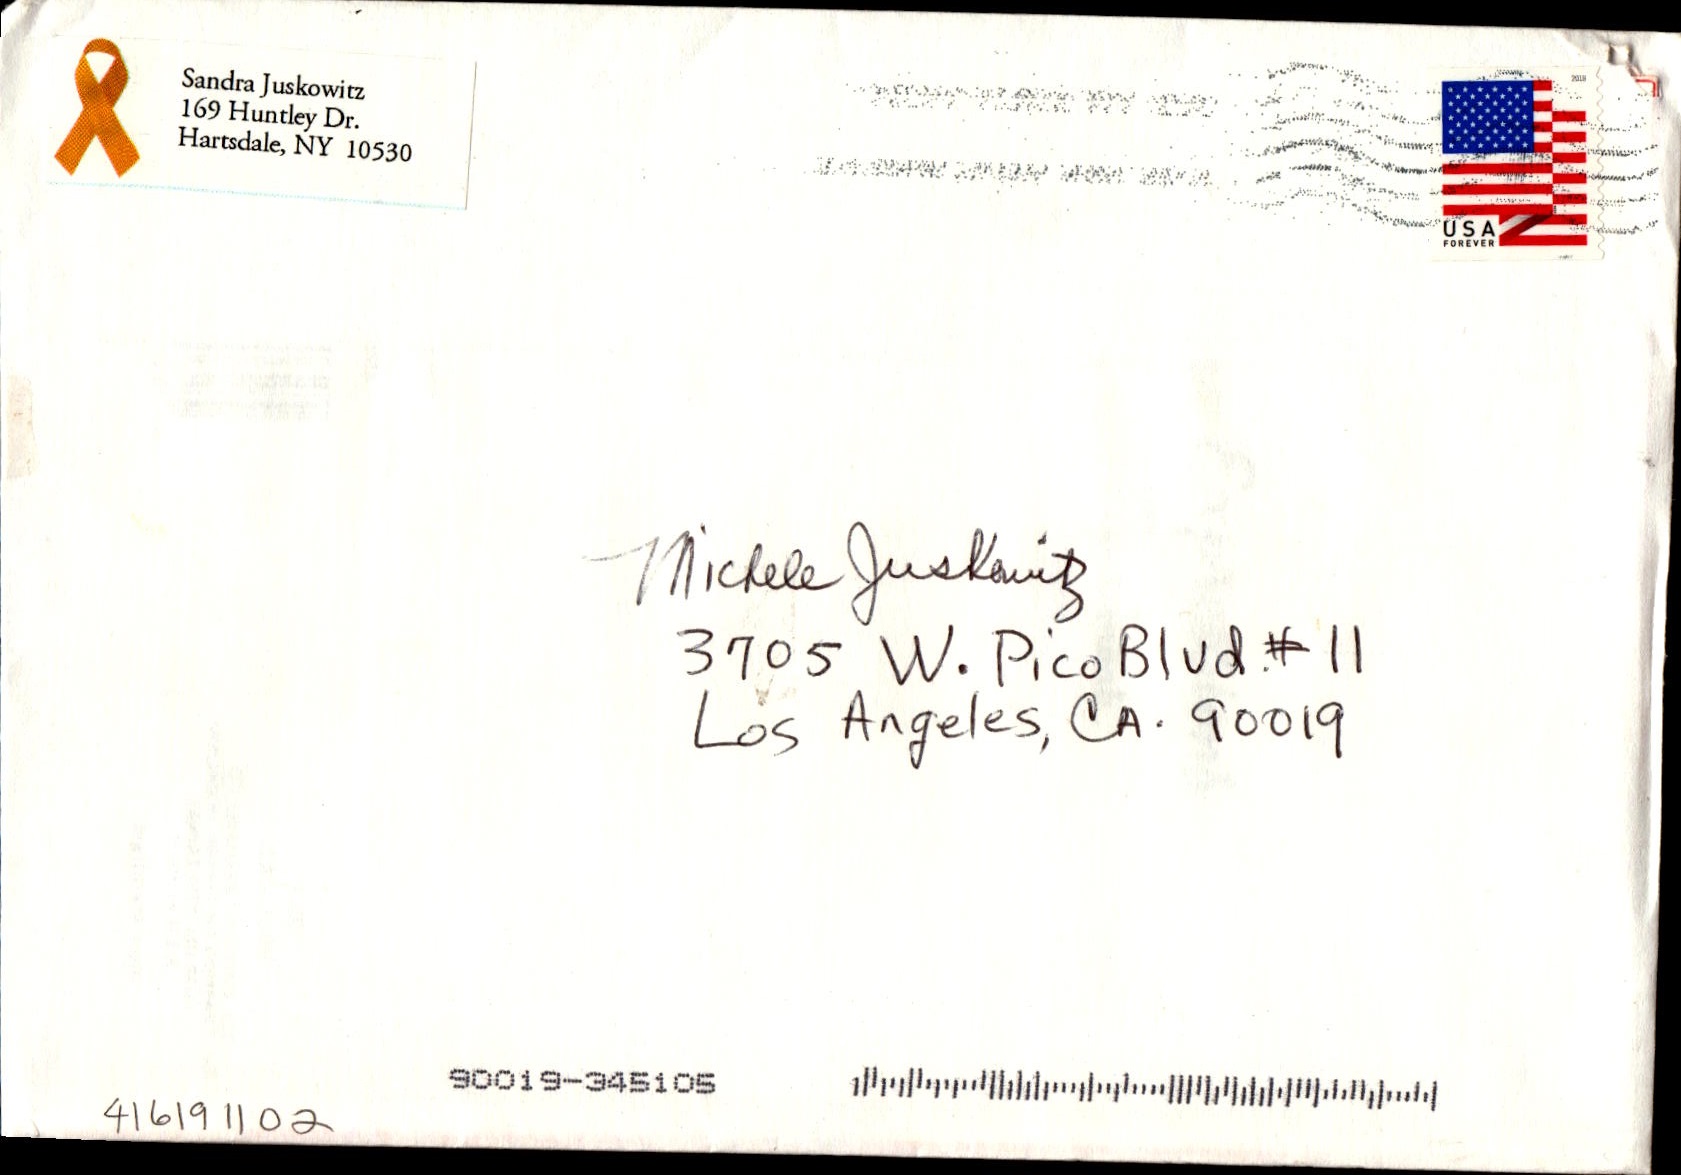 Sandra Juskowitz
169 Huntley Dr.
Hartsdale, NY 10530
2018
USA
FOREVER
Michele Juskowitz
3705 W. Pico Blvd. # 11
Los Angeles, CA. 90019
90019-345105
416191102